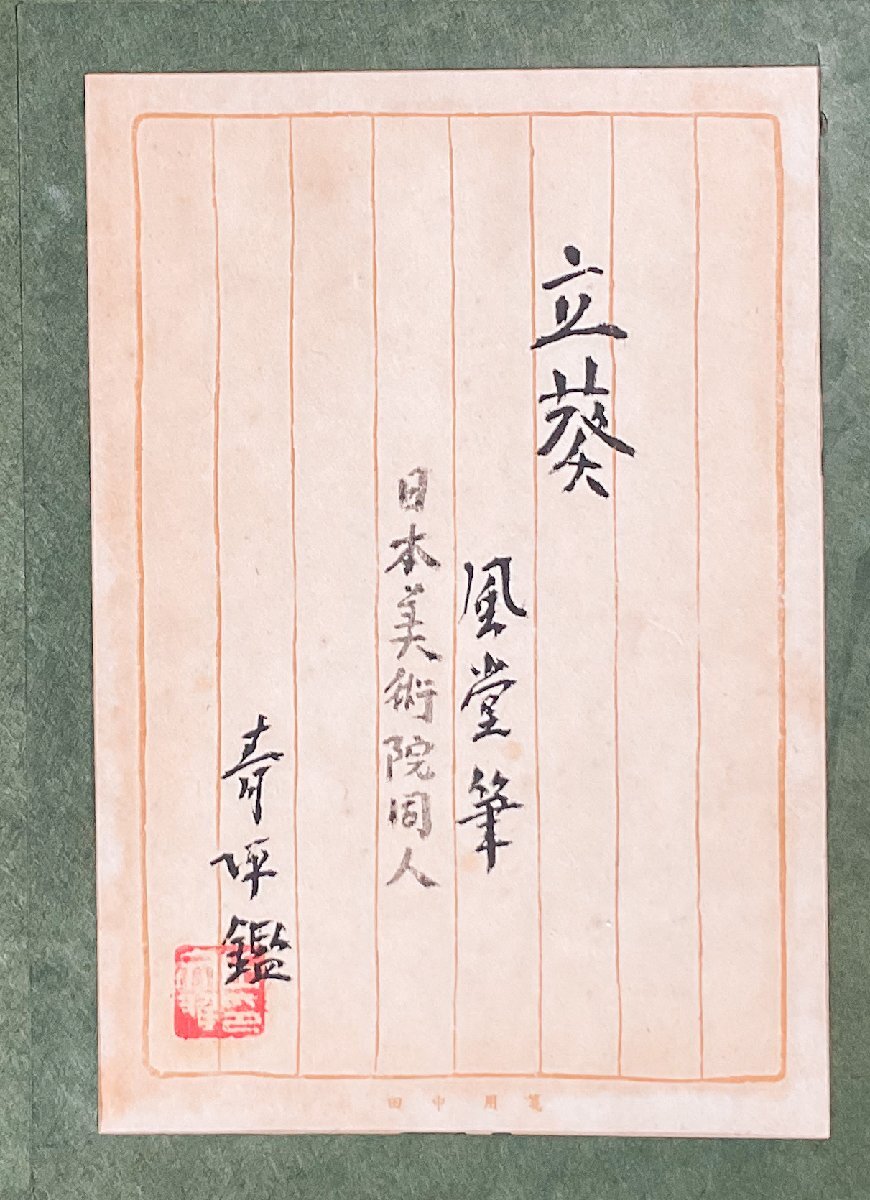 立葵
風堂筆
日本美術院同人
青坪鑑
田中用箋